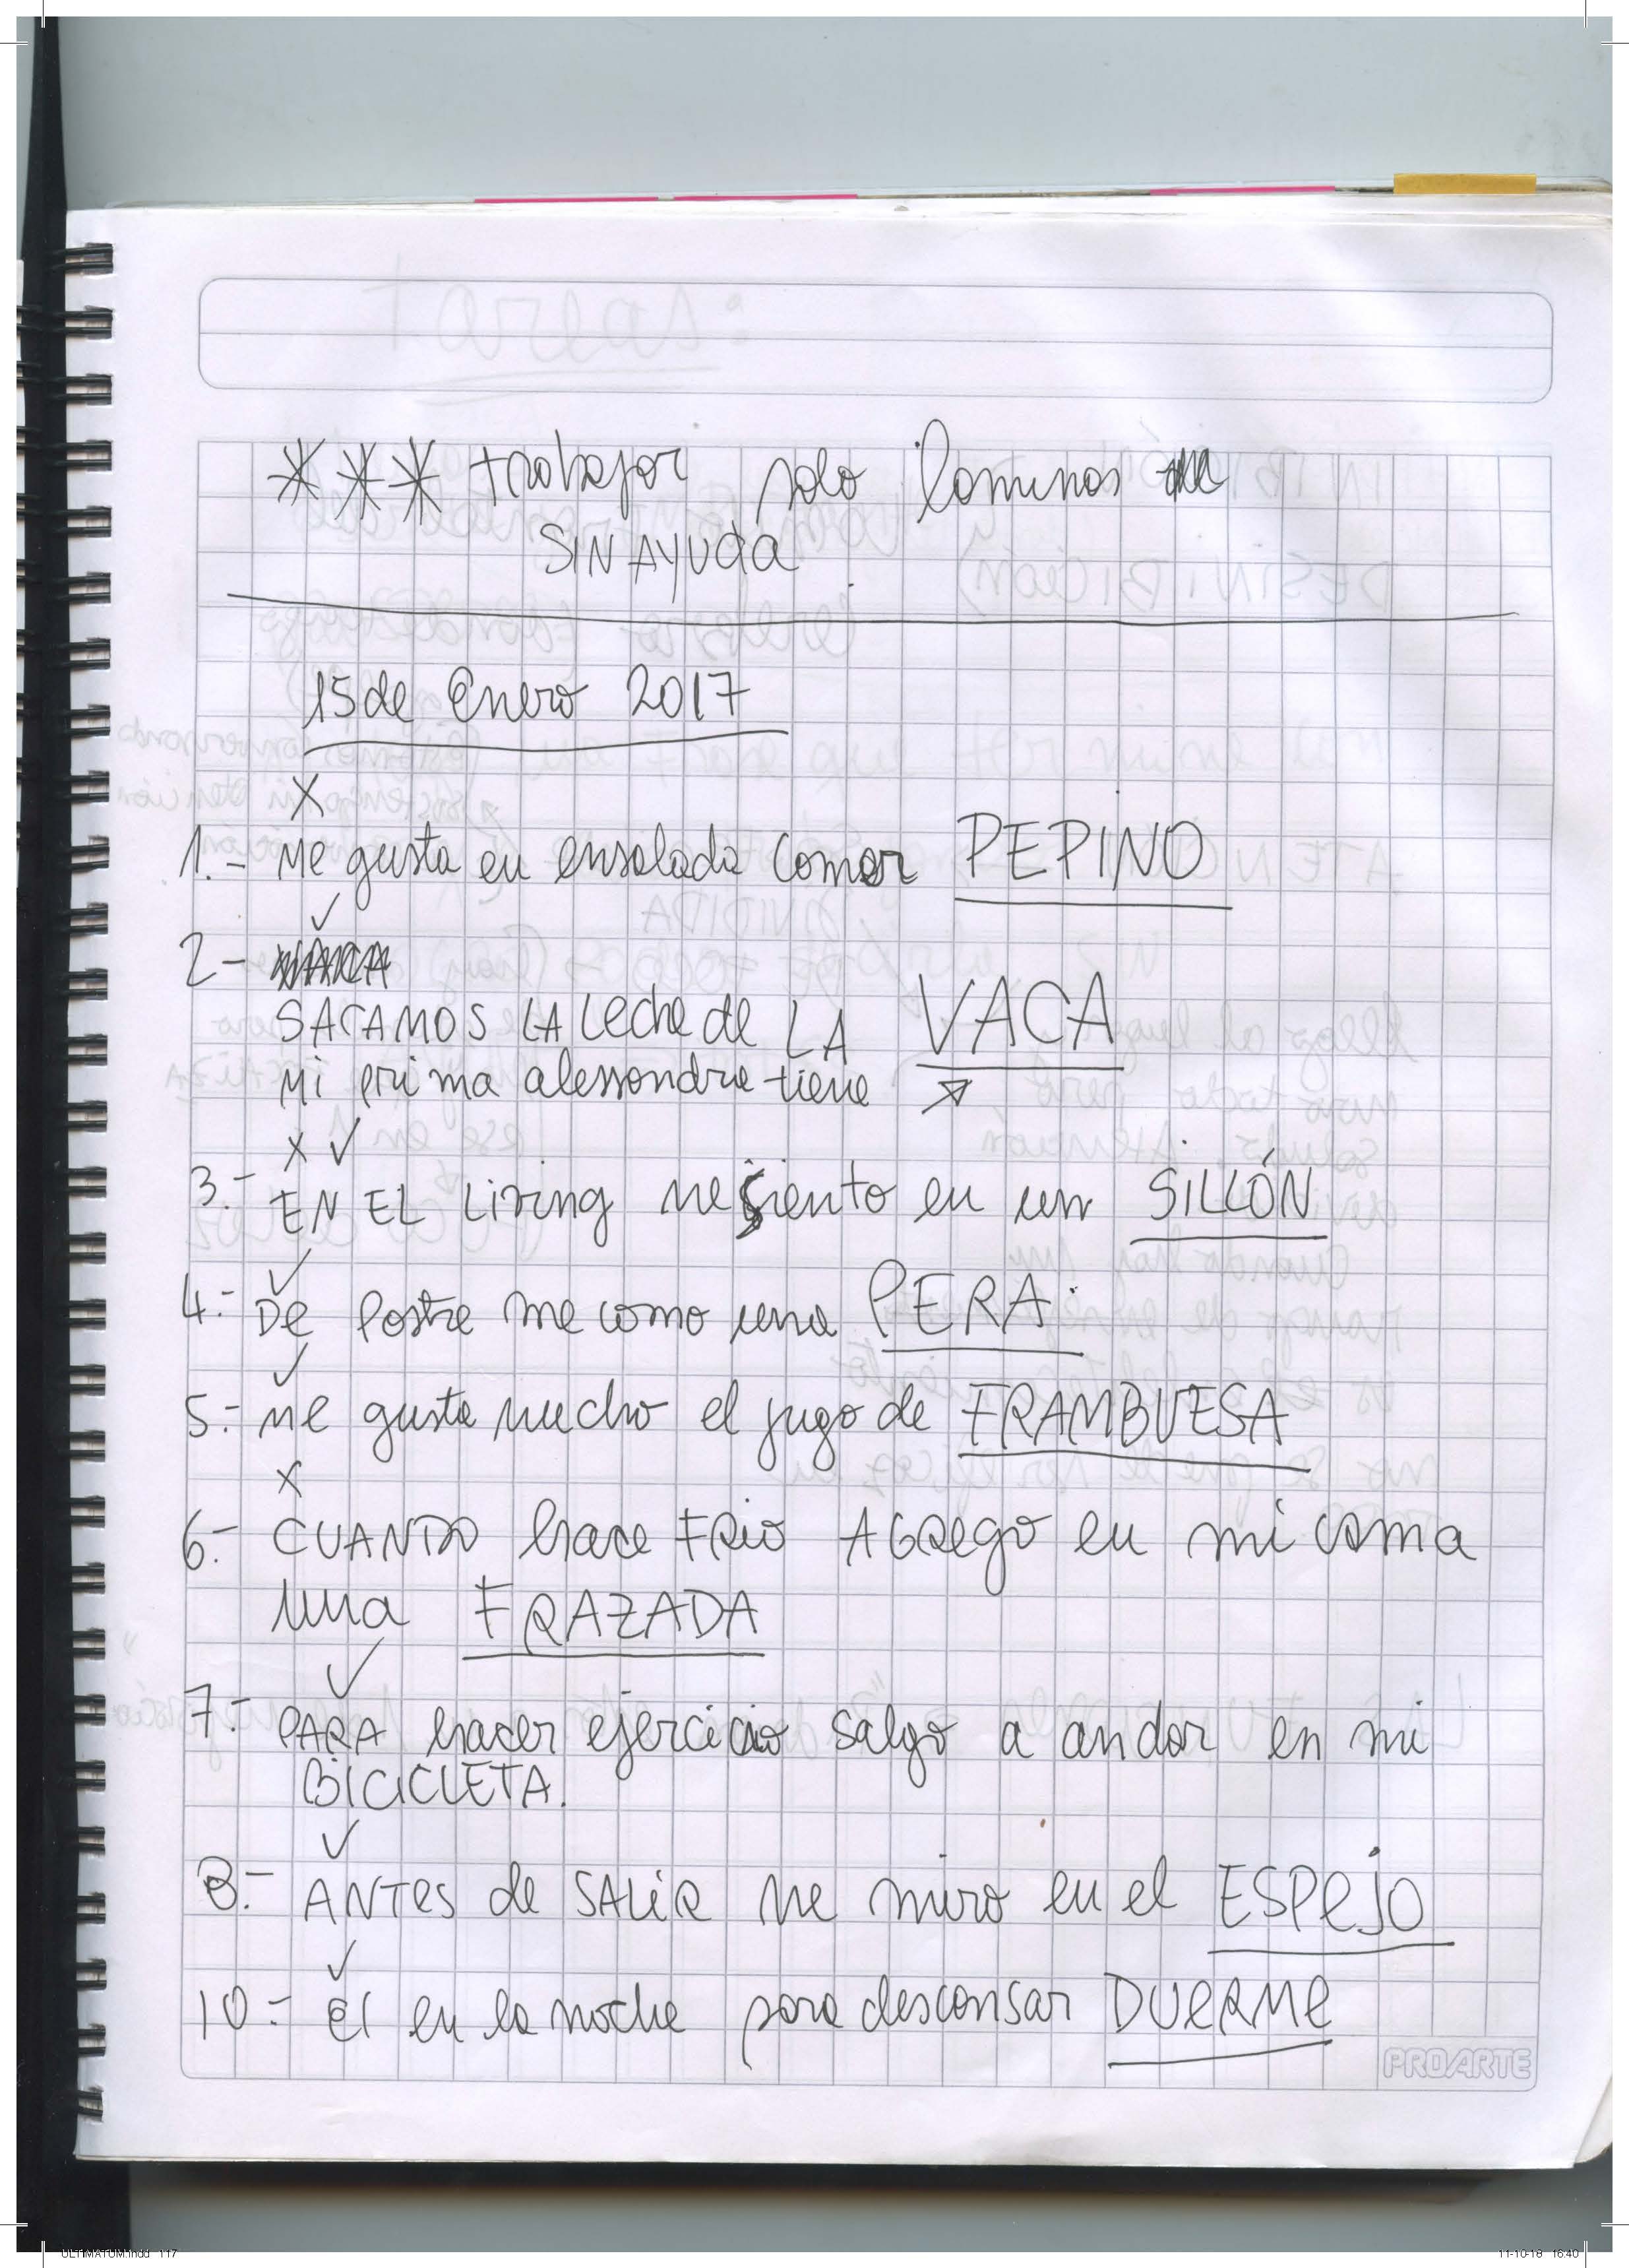 *** trabajar solo laminas
SIN AYUda
15 de Enero 2017
x
1.- Me gusta en ensalada comer PEPINO
✓
2-
SACAMOS LA Leche de LA VACA
Mi prima alessandra tiene
x ✓
3.- EN EL Living me siento en un SILLÓN
✓
4.- De Postre me como una PERA.
✓
5.- me gusta mucho el jugo de FRAMBUESA
x
6.- CUANDO hace FRio AGRego en mi cama
una FRAZADA
✓
7.- PARA hacer ejercicio salgo a andar en mi
BICICLETA.
✓
8.- ANTes de SALiR Me miro en el ESPeJO
✓
10.- él en la noche para descansar DUeRMe
PROARTE
ULTIMATUM.indd 117
11-10-18 16:40